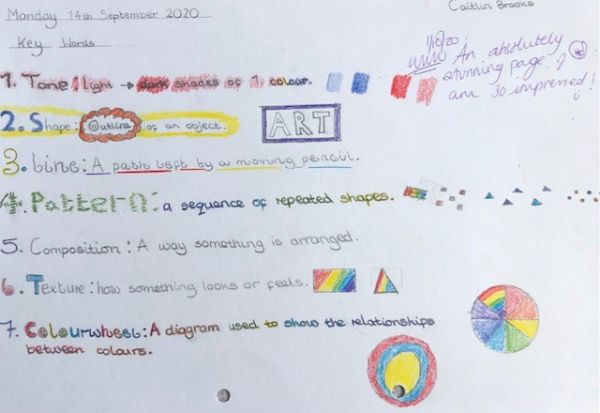 Caitlin Brooks
Monday 14th September 2020
Key Words
An absolutely
stunning page. I
am so impressed!
1. Tone: light → dark shades of 1 colour.
2. Shape: Outline of an object.
ART
3. Line: A path left by a moving pencil.
4. Pattern: a sequence of repeated shapes.
5. Composition: A way something is arranged.
6. Texture: how something looks or feels.
7. Colourwheel: A diagram used to show the relationships
between colours.